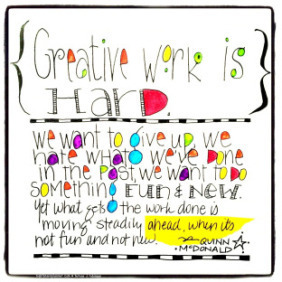 Creative work is
HarD.
we want to give up, we
hate what we've done
in the past, we want to do
something fun & new.
Yet what gets the work done is
moving steadily ahead, when it's
not fun and not new.
QUINN
McDONALD